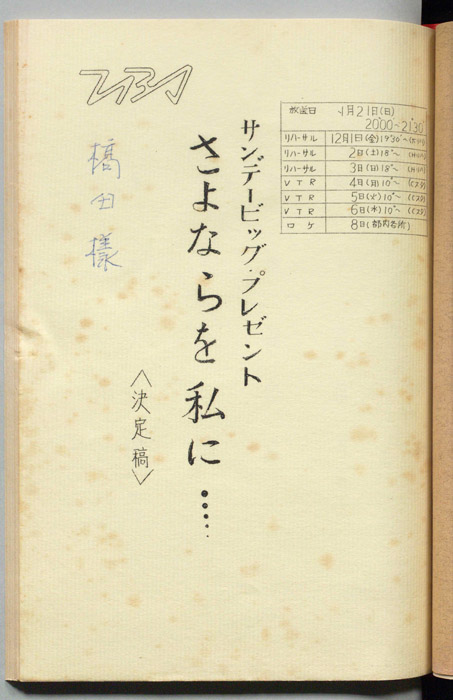 TBS
橋田様
サンデービッグ・プレゼント
さよならを私に……
<決定稿>
放送日 1月21日(日)
20°00~21°30
リハーサル 12月1日(金)19°30~
リハーサル 2日(土)18°~
リハーサル 3日(日)18°~
VTR 4日(月)10°~(Cスタ)
VTR 5日(火)10°~(Cスタ)
VTR 6日(水)10°~(Cスタ)
ロケ 8日(都内各所)